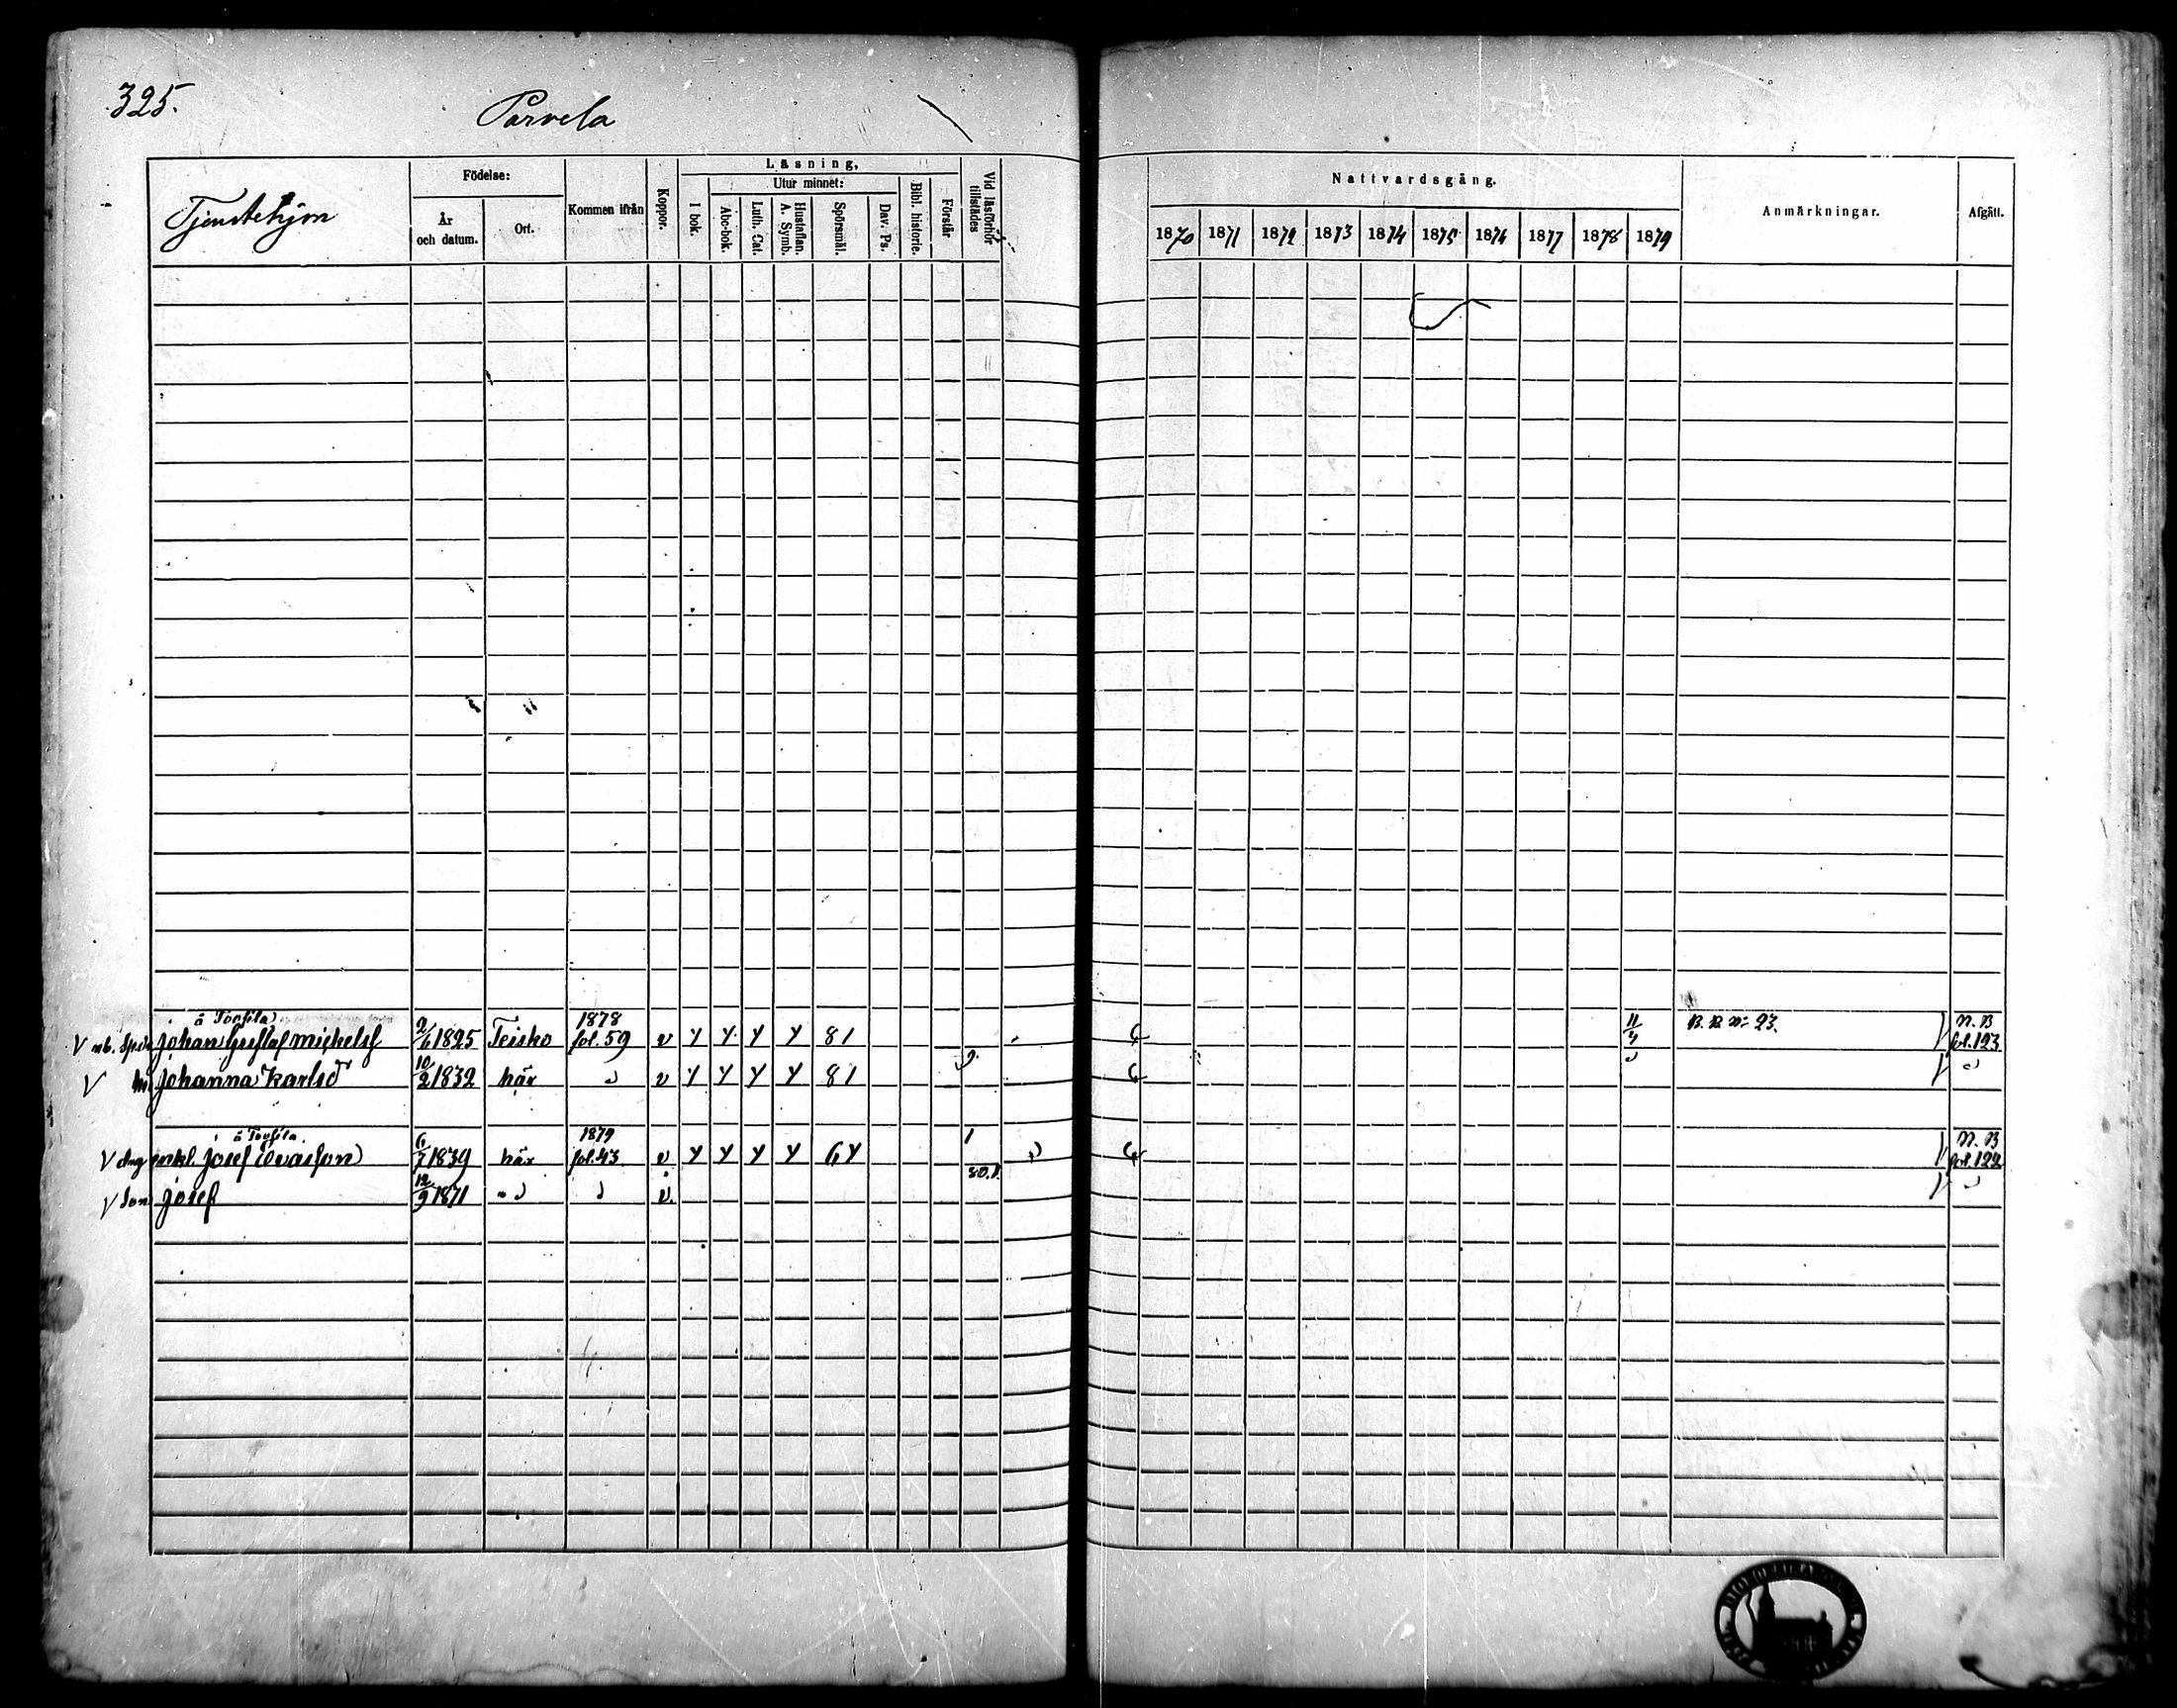 325.
Parvela
Tjenstehjon
Födelse:
År och datum.
Ort.
Kommen ifrån
Koppor.
Läsning,
I bok.
Utur minnet:
Abc-bok.
Luth. Cat.
Hustaflan. A. Symb.
Spörsmål.
Dav. Ps.
Bibl. historie.
Förstår
Vid läsförhör tillstädes
Nattvardsgång.
1870 1871 1872 1873 1874 1875 1876 1877 1878 1879
Anmärkningar.
Afgått.
å Toffila 1878 11 B. B. N: 23. N. B
Johan Gustaf Mickelss 2/6 1825 Teisko fol. 59 v Y Y Y Y 81 fol. 123
Johanna Karlsd 10/2 1832 här v Y Y Y Y 81
å Toffila 1879 1 N. B
enkl. Josef Ivarsson 6/7 1839 här fol. 43 v Y Y Y Y fol. 122
Son Josef 12/9 1871 v.